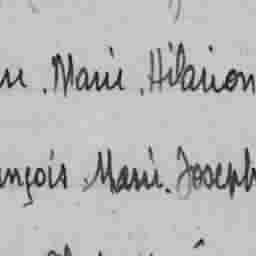 Marie. Hilarion
ançois. Marie. Joseph